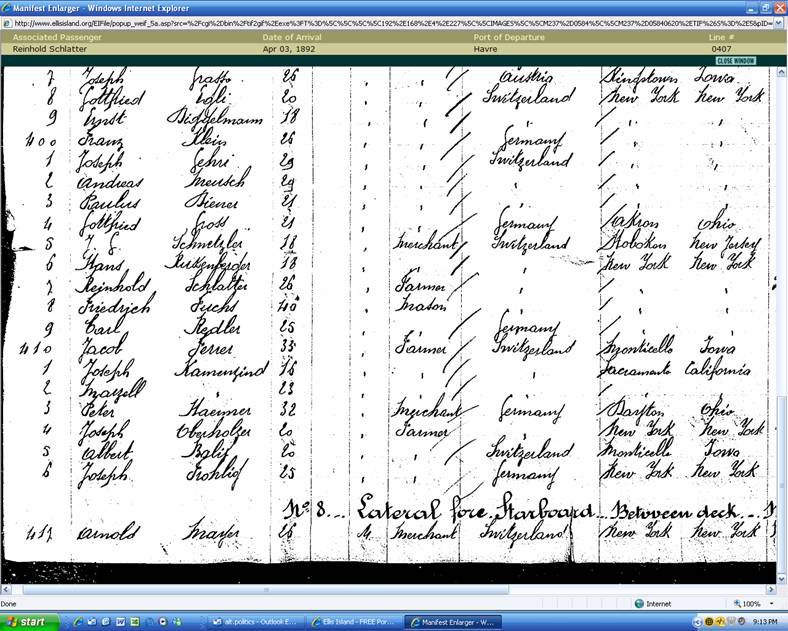 Manifest Enlarger - Windows Internet Explorer
Associated Passenger Date of Arrival Port of Departure Line #
Reinhold Schlatter Apr 03, 1892 Havre 0407
CLOSE WINDOW
7 Joseph 26 " " Austria Kingstown Iowa
8 Gottfried Egli 20 " " Switzerland New York New York
9 Ernst Bisgelmann 18 " " " " "
400 Franz Klein 26 " " Germany " "
1 Joseph Gehri 29 " " Switzerland " "
2 Andreas Meusch 29 " " " " "
3 Paulus Biener 21 " " " " "
4 Gottfried Gross 21 " " Germany Akron Ohio
5 J. G. Schmetzler 18 " Merchant Switzerland Hoboken New Jersey
6 Hans 18 " " " New York New York
7 Reinhold Schlatter 26 " Farmer " " "
8 Friedrich Fuchs 40 " Mason " " "
9 Carl Redler 25 " " Germany " "
410 Jacob Ferrer 33 " Farmer Switzerland Monticello Iowa
1 Joseph Kamenzind 16 " " " Sacramento California
2 Marzell " 23 " " " " "
3 Peter Haemer 32 " Merchant Germany Dayton Ohio
4 Joseph Oberholzer 20 " Farmer " New York New York
5 Albert Balif 20 " " Switzerland Monticello Iowa
6 Joseph Frohlig 25 " " Germany New York New York
No 8... Lateral fore Starboard... Between deck...
417 Arnold Mayer 26 M. Merchant Switzerland New York New York
Done Internet 100%
start alt.politics - Outlook E... Ellis Island - FREE Por... Manifest Enlarger - W... 9:13 PM